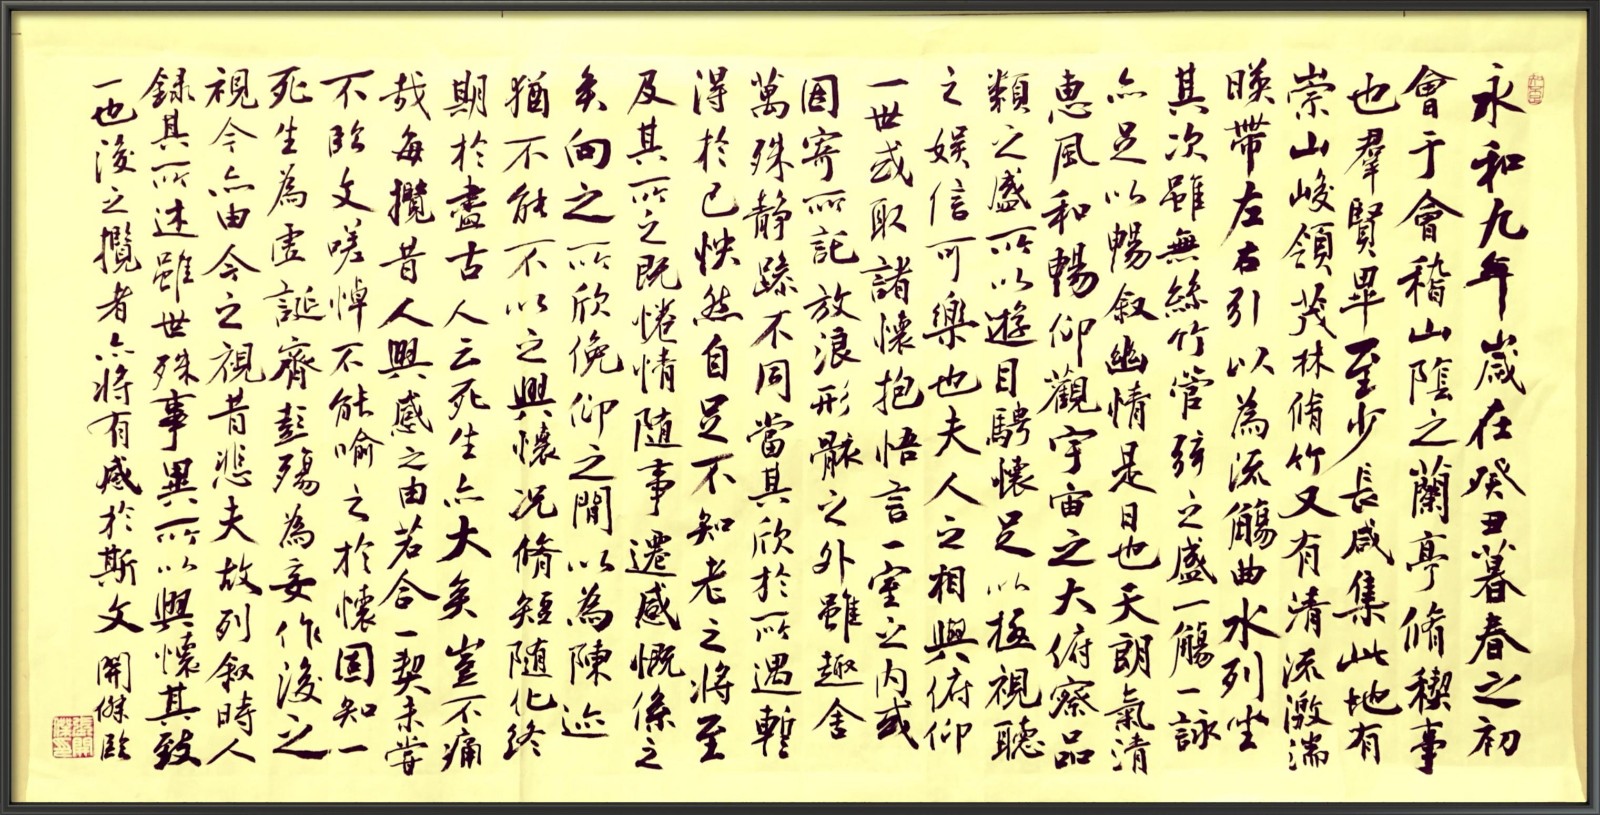 永和九年歲在癸丑暮春之初
會于會稽山陰之蘭亭脩稧事
也羣賢畢至少長咸集此地有
崇山峻領茂林脩竹又有清流激湍
暎帶左右引以為流觴曲水列坐
其次雖無絲竹管弦之盛一觴一詠
亦足以暢叙幽情是日也天朗氣清
惠風和暢仰觀宇宙之大俯察品
類之盛所以遊目騁懷足以極視聽
之娛信可樂也夫人之相與俯仰
一世或取諸懷抱悟言一室之内或
因寄所託放浪形骸之外雖趣舍
萬殊静躁不同當其欣於所遇暫
得於己怏然自足不知老之將至
及其所之既惓情随事遷感慨係之
矣向之所欣俛仰之閒以為陳迹
猶不能不以之興懷況脩短随化終
期於盡古人云死生亦大矣豈不痛
哉每攬昔人興感之由若合一契未嘗
不臨文嗟悼不能喻之於懷固知一
死生為虛誕齊彭殤為妄作後之
視今亦由今之視昔悲夫故列叙時人
録其所述雖世殊事異所以興懷其致
一也後之攬者亦將有感於斯文 開傑臨